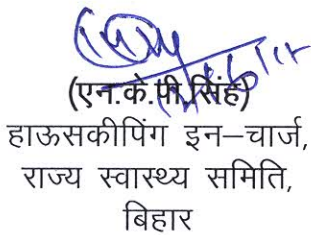 (एन.के.पी.सिंह)
हाऊसकीपिंग इन–चार्ज,
राज्य स्वास्थ्य समिति,
बिहार